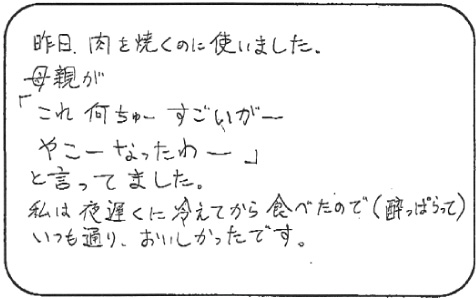 昨日、肉を焼くのに使いました。
母親が
「これ 何ちゅー すごいがー
やこーなったわー」
と言ってました。
私は夜遅くに冷えてから食べたので(酔っぱらって)
いつも通り、おいしかったです。